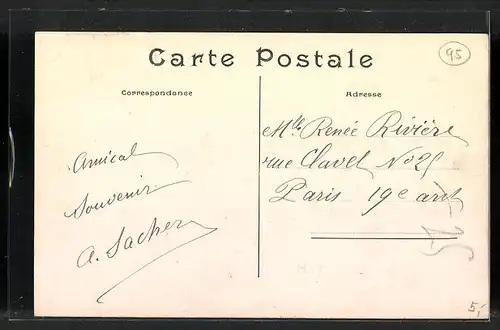 Carte Postale
95
Correspondance
Adresse
Amical
Souvenir
A. Sacher
Mlle Renée Rivière
rue Clavel No 25
Paris 19e arrt
5,-